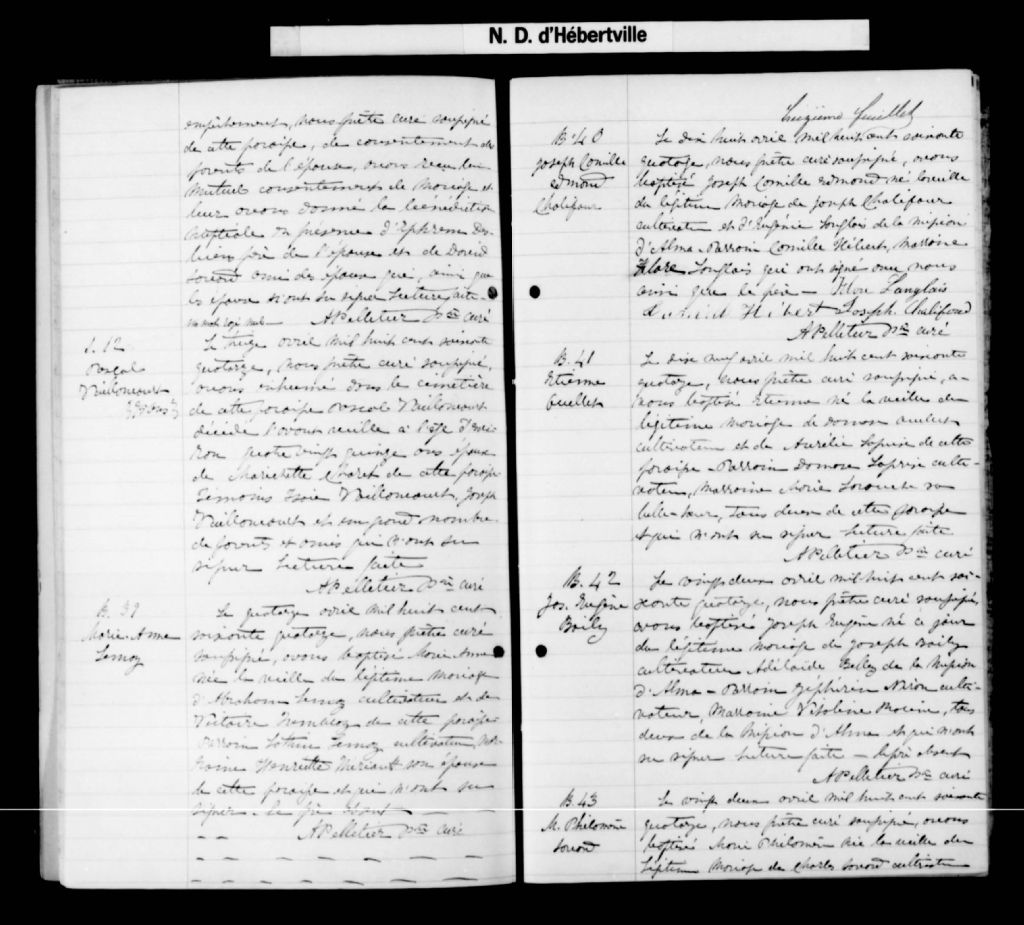 N. D. d'Hébertville
empêchement, nous prêtre curé soussigné
de cette paroisse, du consentement des
parents de l'épouse, avons reçu leur
mutuel consentement de mariage et
leur avons donné la bénédiction
nuptiale en présence d'Ephrem
père de l'épouse et de David
ami des époux qui, ainsi que
les époux n'ont su signer Lecture faite
A Pelletier Ptre curé
S. 12
Pascal
Vaillancourt
Le treize avril mil huit cent soixante
quatorze, nous prêtre curé soussigné,
avons inhumé dans le cimetière
de cette paroisse Pascal Vaillancourt
décédé l'avant veille à l'âge d'envi-
ron quatre vingt quinze ans époux
de Marichette de cette paroisse
Témoins Isaïe Vaillancourt, Joseph
Vaillancourt et un grand nombre
de parents et amis qui n'ont su
signer Lecture faite
A Pelletier Ptre curé
B. 39
Marie-Anne
Lemay
Le quatorze avril mil huit cent
soixante quatorze, nous prêtre curé
soussigné, avons baptisé Marie Anne
née la veille du légitime mariage
d'Abraham Lemay cultivateur et de
Victoire Tremblay de cette paroisse
Parrain Lemay cultivateur, Mar-
raine Henriette son épouse
de cette paroisse et qui n'ont su
signer. Le père absent
A Pelletier Ptre curé
feuillet
B. 40
Joseph Camille
Edmond
Chalifour
Le dix huit avril mil huit cent soixante
quatorze, nous prêtre curé soussigné, avons
baptisé Joseph Camille Edmond, né la veille
du légitime mariage de Joseph Chalifour
cultivateur et d'Eugénie Langlais de la mission
d'Alma. Parrain Camille Hébert, Marraine
Flore Langlais qui ont signé avec nous
ainsi que le père — Flore Langlais
Hébert Joseph Chalifour
A Pelletier Ptre curé
B. 41
Etienne
Ouellet
Le dix neuf avril mil huit cent soixante
quatorze, nous prêtre curé soussigné, a-
vons baptisé Etienne né la veille du
légitime mariage de Damase Ouellet
cultivateur et de Aurélie Laprise de cette
paroisse — Parrain Damase Laprise culti-
vateur, Marraine Marie Larouche sa
belle-sœur, tous deux de cette paroisse
et qui n'ont su signer Lecture faite
A Pelletier Ptre curé
B. 42
Jos. Eugène
Boily
Le vingt deux avril mil huit cent soi-
xante quatorze, nous prêtre curé soussigné,
avons baptisé Joseph Eugène né ce jour
du légitime mariage de Joseph Boily
cultivateur Adélaïde de la Mission
d'Alma — Parrain Zéphirin culti-
vateur, Marraine tous
deux de la Mission d'Alma et qui n'ont
su signer Lecture faite — Le père absent
A Pelletier Ptre curé
B. 43
M. Philomène
Le vingt deux avril mil huit cent soixante
quatorze, nous prêtre curé soussigné, avons
baptisé Marie Philomène née la veille du
légitime mariage de Charles cultivateur